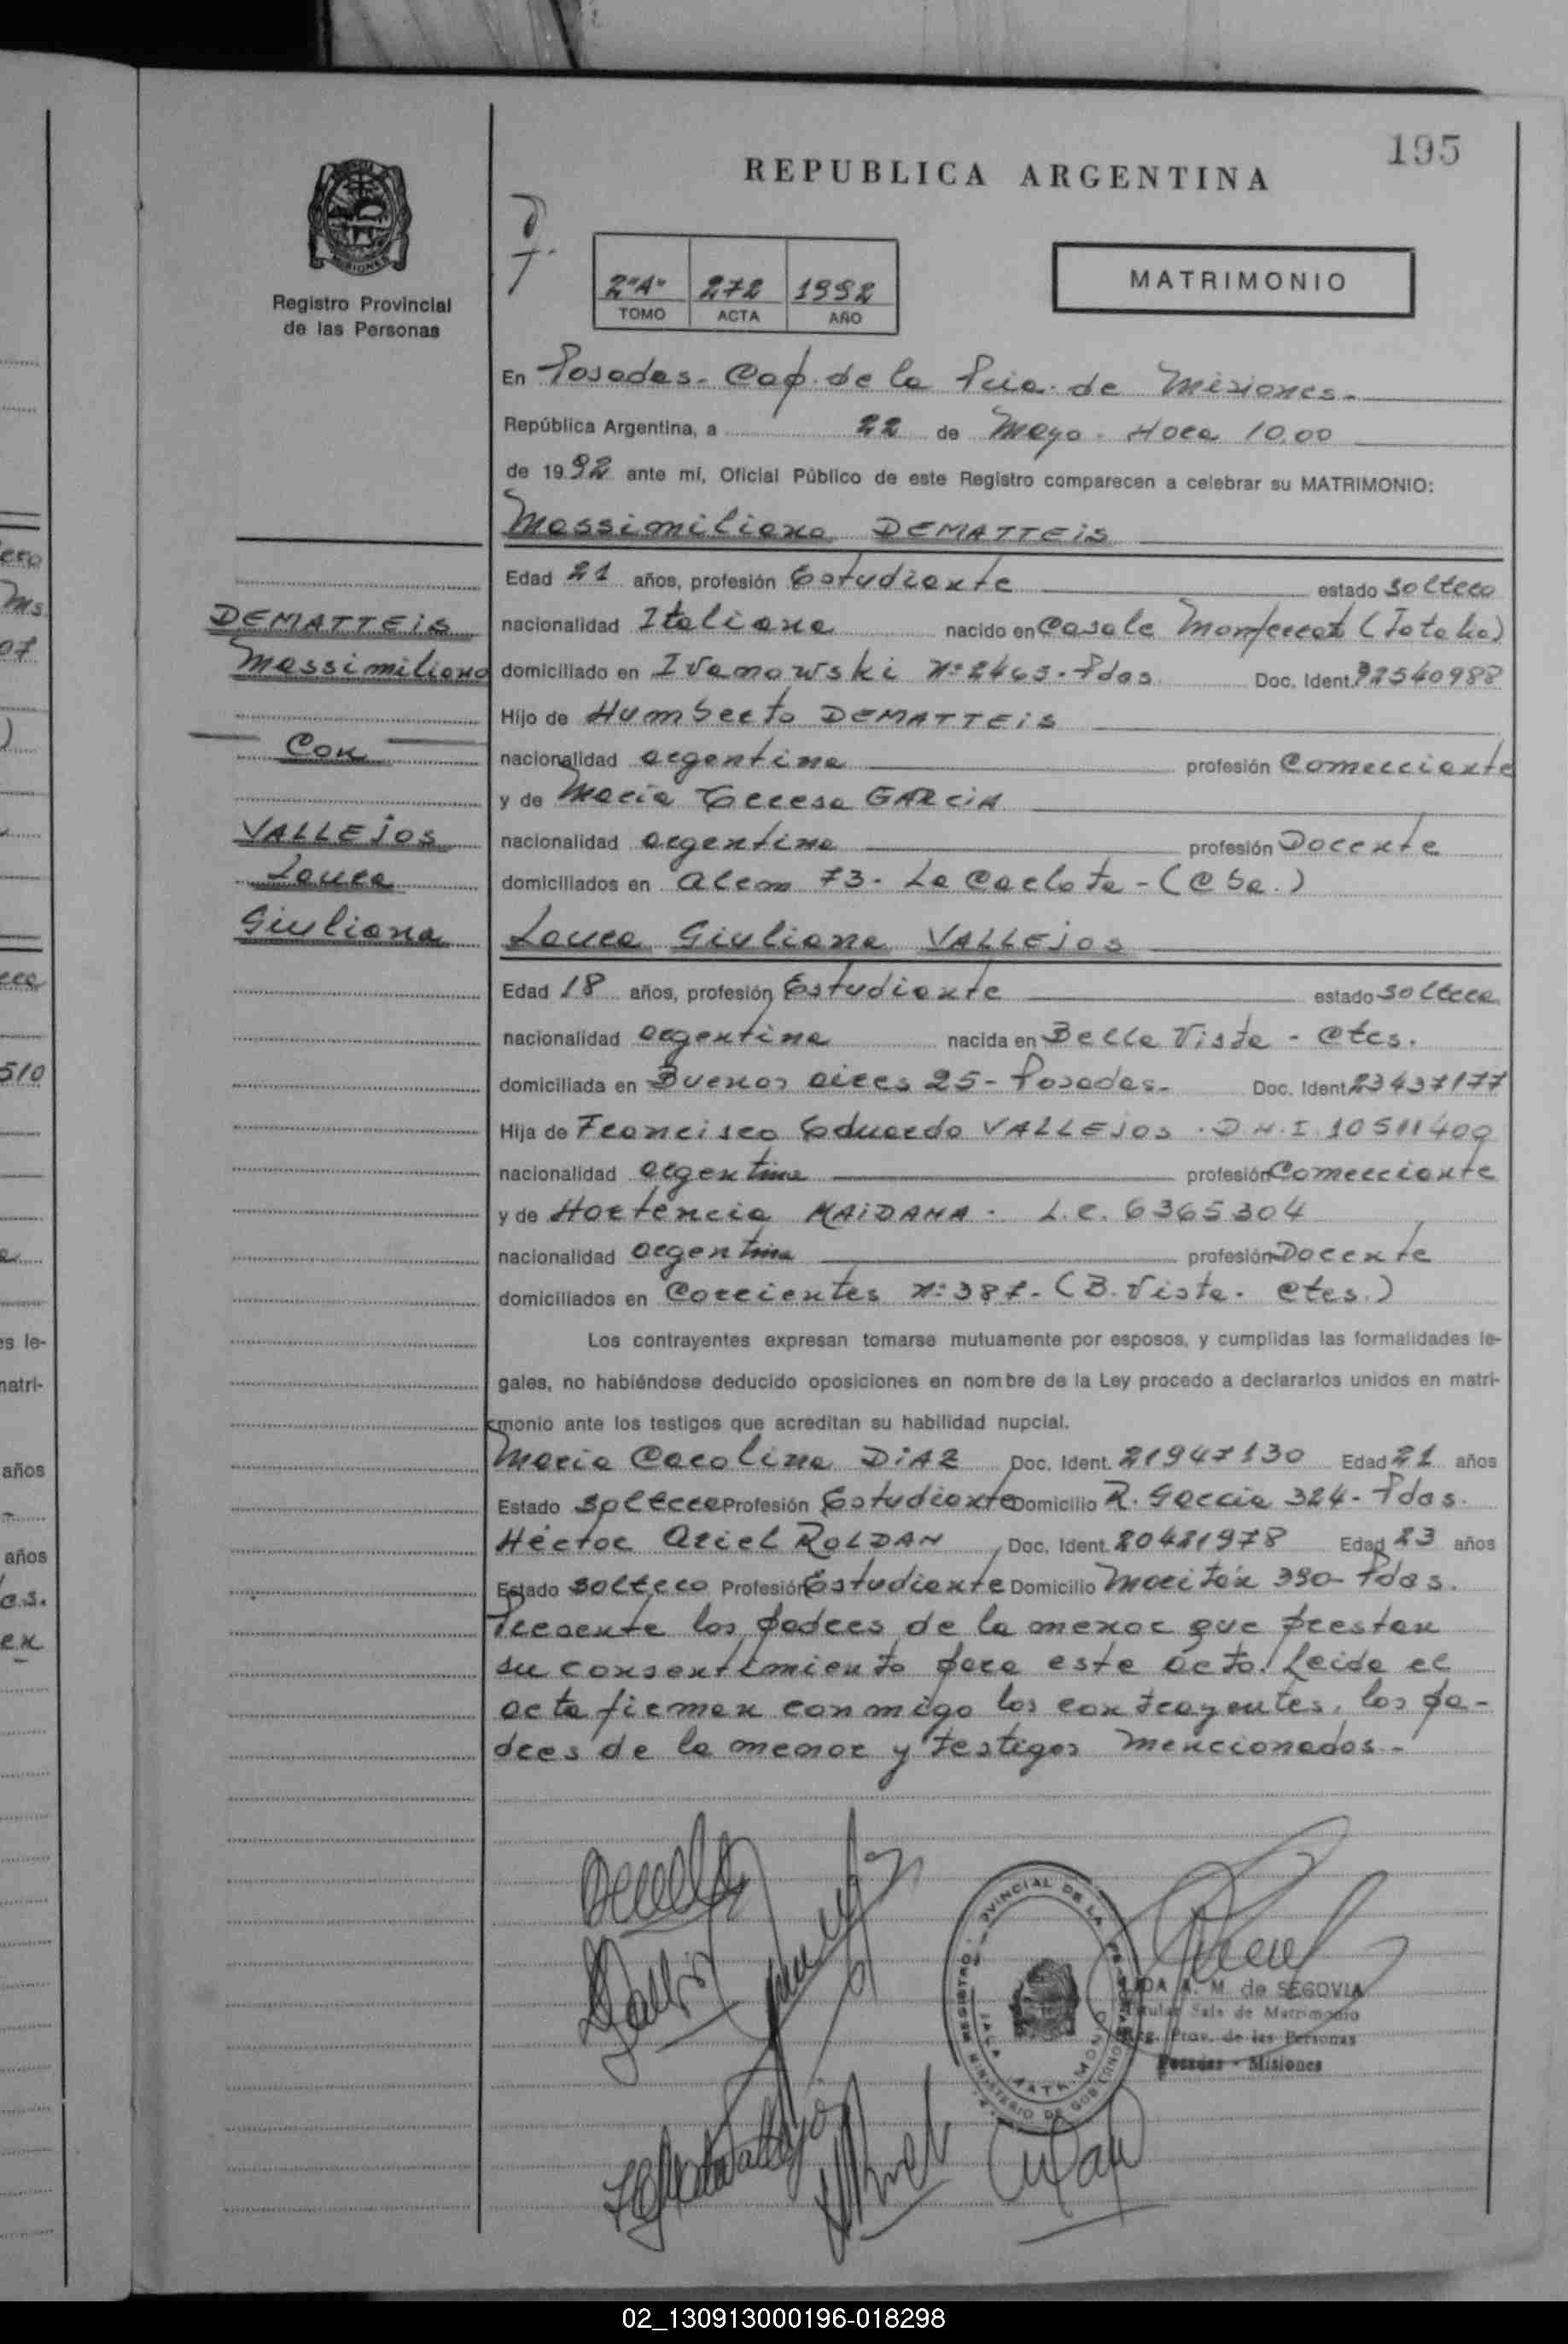 195
REPUBLICA ARGENTINA
MISIONES
Registro Provincial
de las Personas
2"A" 272 1992
TOMO ACTA AÑO
MATRIMONIO
En Posadas- Cap. de la Pcia. de Misiones-
República Argentina, a 22 de Mayo - Hora 10,00
de 1992 ante mí, Oficial Público de este Registro comparecen a celebrar su MATRIMONIO:
Massimiliano DEMATTEIS
Edad 21 años, profesión Estudiante estado soltero
nacionalidad Italiana nacido en Casale Monferrat
domiciliado en Ivanowski Nº 2465 - Pdas Doc. Ident. 92540988
Hijo de Humberto DEMATTEIS
nacionalidad argentina profesión Comerciante
y de María Teresa GARCIA
nacionalidad argentina profesión Docente
domiciliados en Alem 73 - La Carlota - (Cba.)
DEMATTEIS
Massimiliano
Con
VALLEJOS
Laura
Giuliana
Laura Giuliana VALLEJOS
Edad 18 años, profesión Estudiante estado soltera
nacionalidad argentina nacida en Bella Vista - Ctes.
domiciliada en Buenos Aires 25 - Posadas- Doc. Ident. 23437177
Hija de Francisco Eduardo VALLEJOS - D.N.I. 10511409
nacionalidad argentina profesión Comerciante
y de Hortencia MAIDANA - L.C. 6365304
nacionalidad argentina profesión Docente
domiciliados en Corrientes Nº 387 - (B. Vista - Ctes.)
Los contrayentes expresan tomarse mutuamente por esposos, y cumplidas las formalidades le-
gales, no habiéndose deducido oposiciones en nombre de la Ley procedo a declararlos unidos en matri-
monio ante los testigos que acreditan su habilidad nupcial.
María Carolina DIAZ Doc. Ident. 21947130 Edad 21 años
Estado soltera Profesión Estudiante Domicilio R. Garcia 324 - Pdas.
Héctor Ariel ROLDAN Doc. Ident. 20421978 Edad 23 años
Estado soltero Profesión Estudiante Domicilio Moritán 390 - Pdas.
Presente los padres de la menor que prestan
su consentimiento para este acto. Leida el
acta firman conmigo los contrayentes, los pa-
dres de la menor y testigos mencionados-
A. M. de SEGOVIA
Titular Sala de Matrimonio
Reg. Prov. de las Personas
Posadas - Misiones
02_130913000196-018298